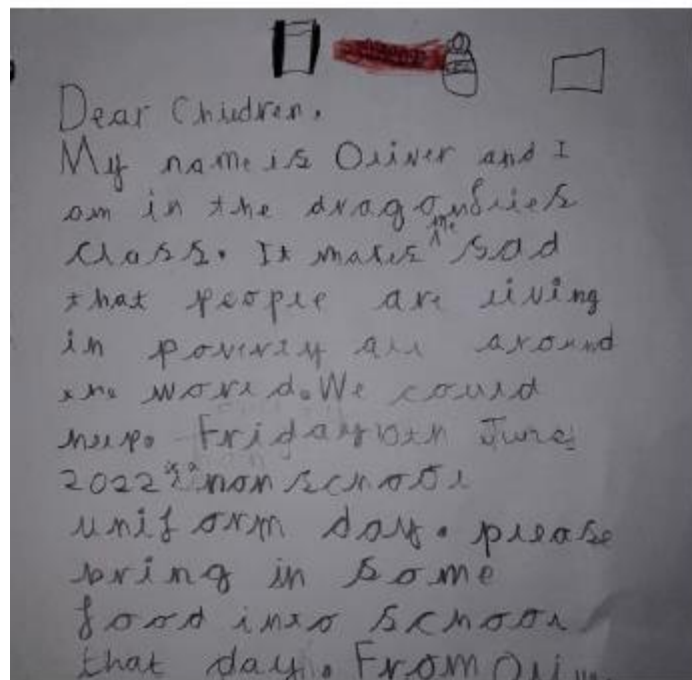 Dear Children,
My name is Oliver and I
am in the dragonflies
class. It makes me sad
that people are living
in poverty all around
the world. We could
help. Friday 10th June
2022 is a non school
uniform day. please
bring in some
food into school
that day. From Oliver